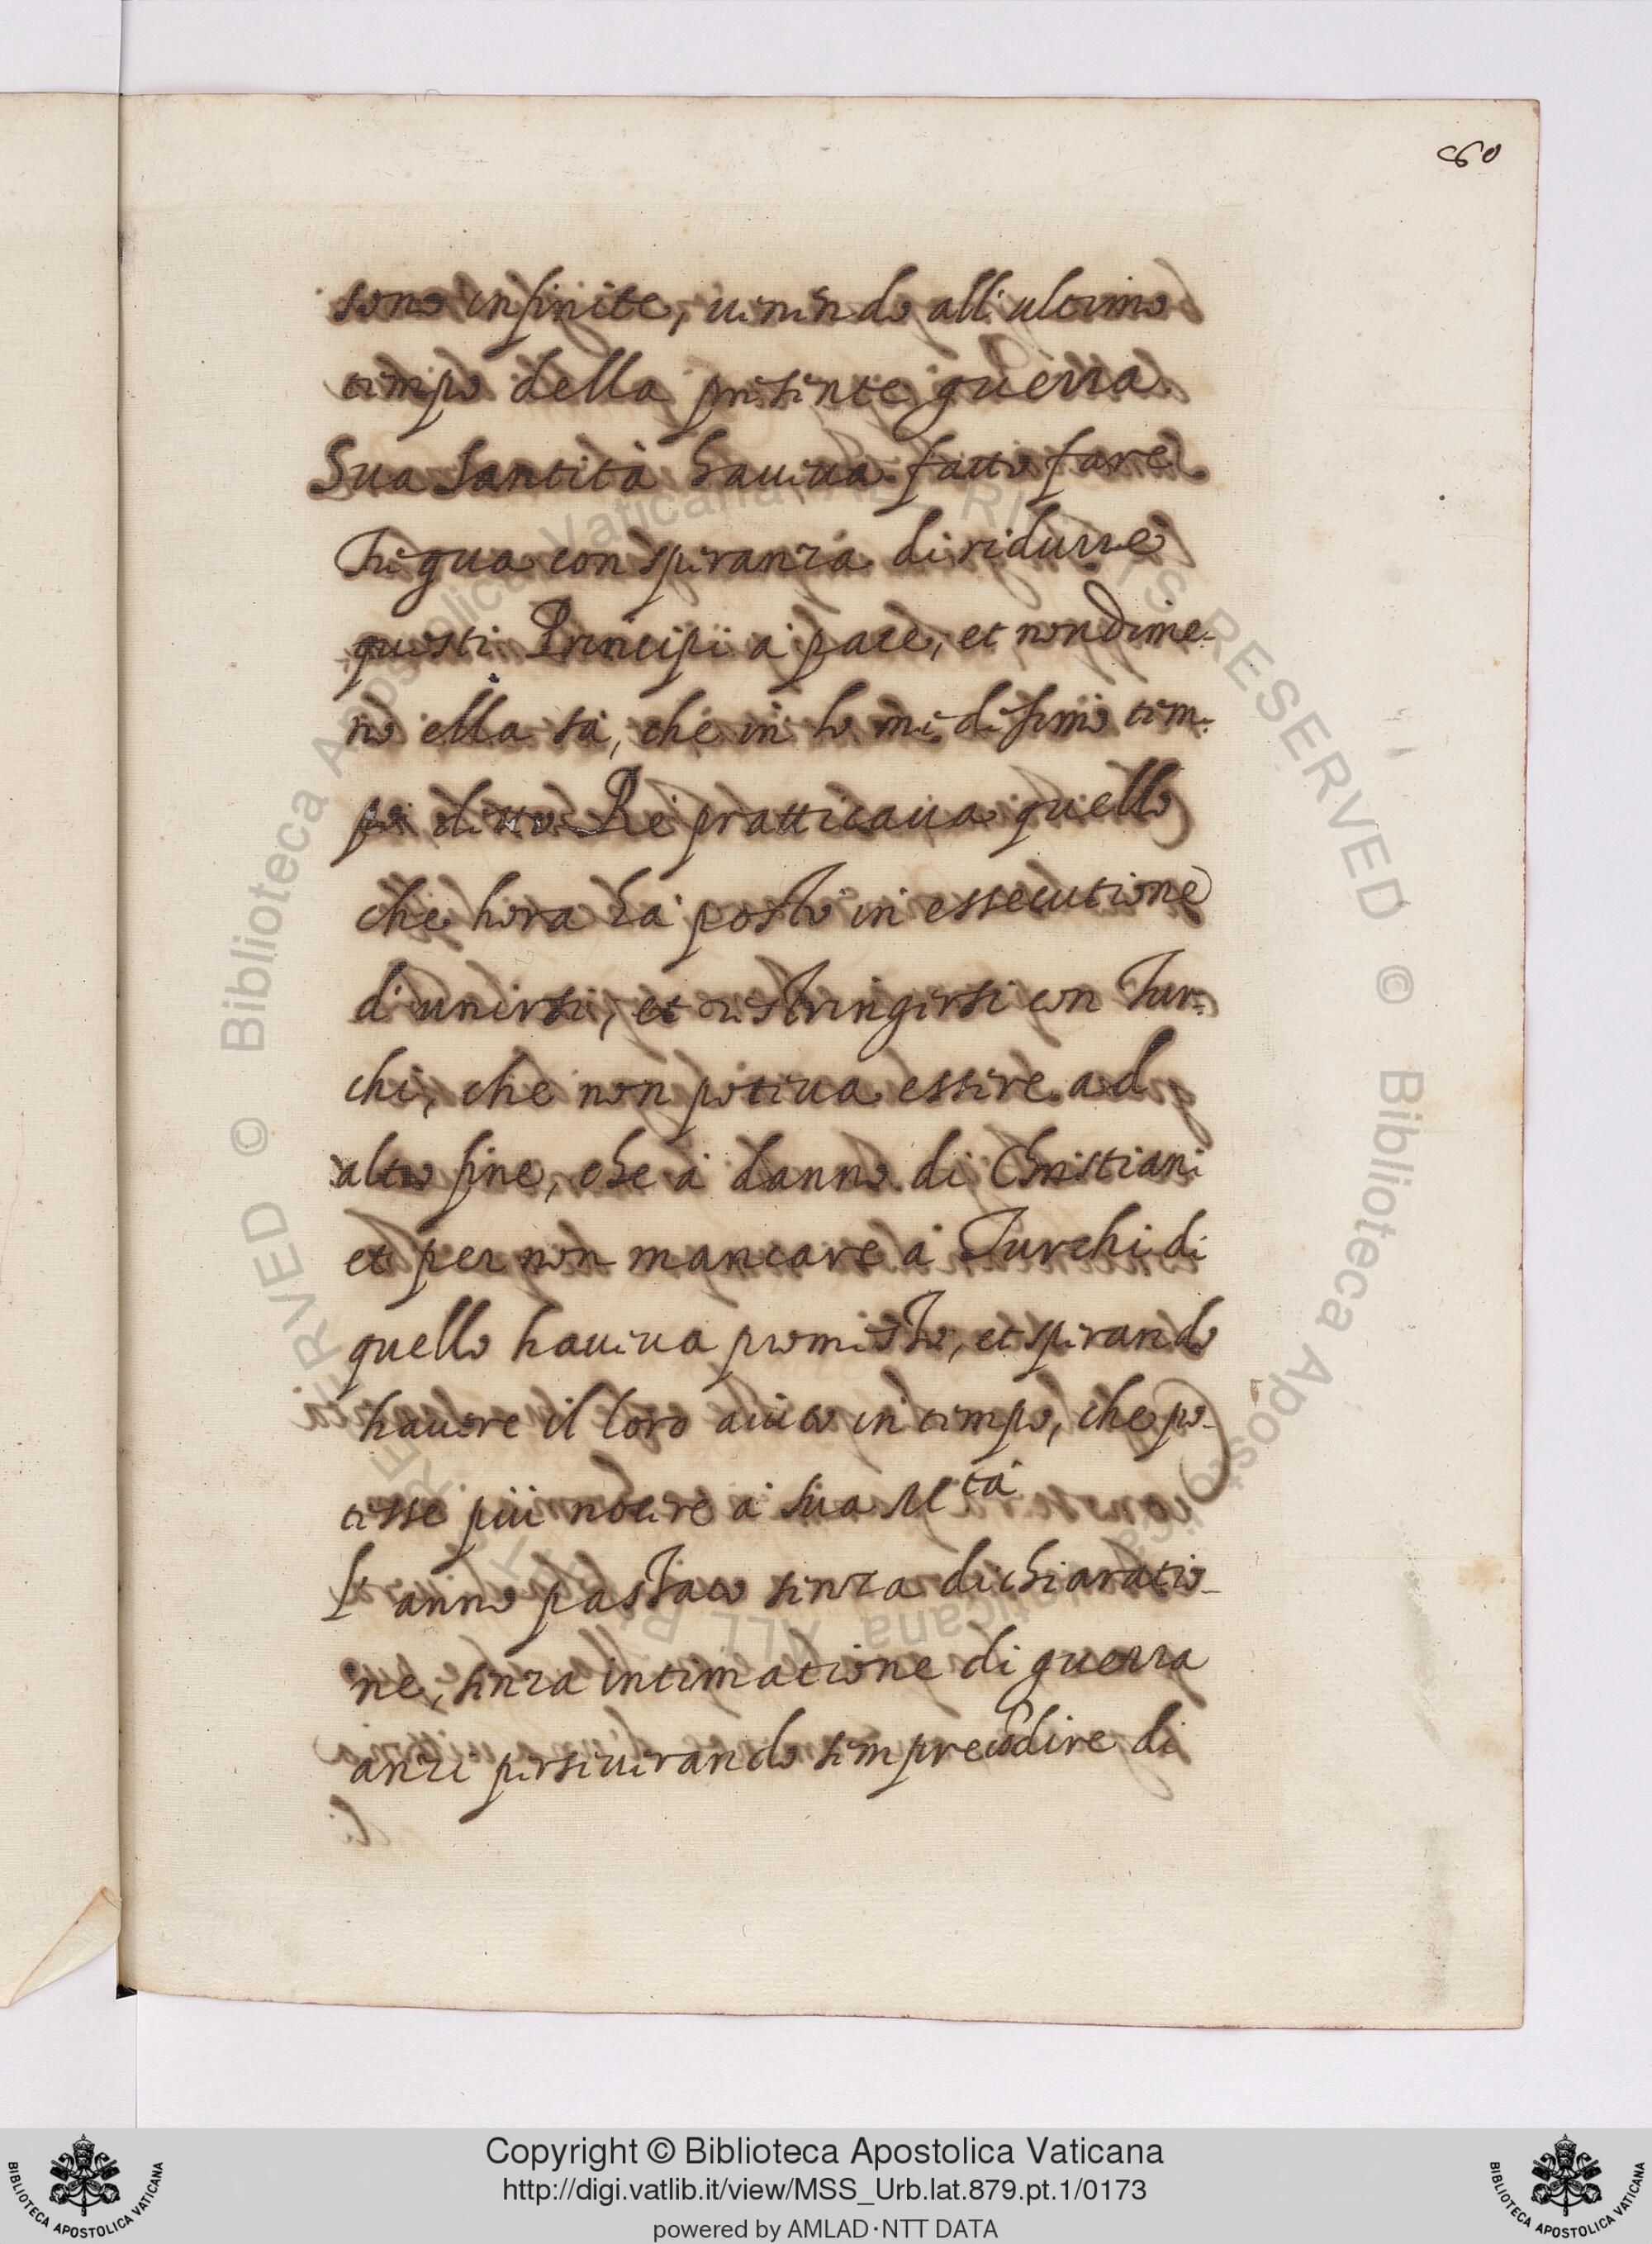 860
sono infinite, uenendo all'ultimo
tempo della presente guerra.
Sua Santità haueua fatto fare
Tregua con speranza di ridurre
questi Principi à pace, et nondime-
no ella sà, che in lo medesimo tem-
po detto Re pratticaua quello
che hora hà posto in essecutione
d'unirsi, et restringersi con Tur-
chi, che non poteua essere ad
altro fine, che à danno di Christiani
et per non mancare à Turchi di
quello haueua promesso, et sperando
hauere il loro aiuto in tempo, che po-
tesse più nocere à sua Mtà
L'anno passato senza dichiaratio-
ne, senza intimatione di guerra
anzi perseuerando sempre dire di
Copyright © Biblioteca Apostolica Vaticana
http://digi.vatlib.it/view/MSS_Urb.lat.879.pt.1/0173
powered by AMLAD·NTT DATA
BIBLIOTECA APOSTOLICA VATICANA
BIBLIOTECA APOSTOLICA VATICANA